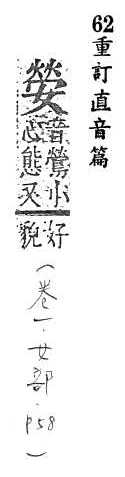 62重訂直音篇
嫈音鶯小心態又好貌
(卷一·女部·p58)